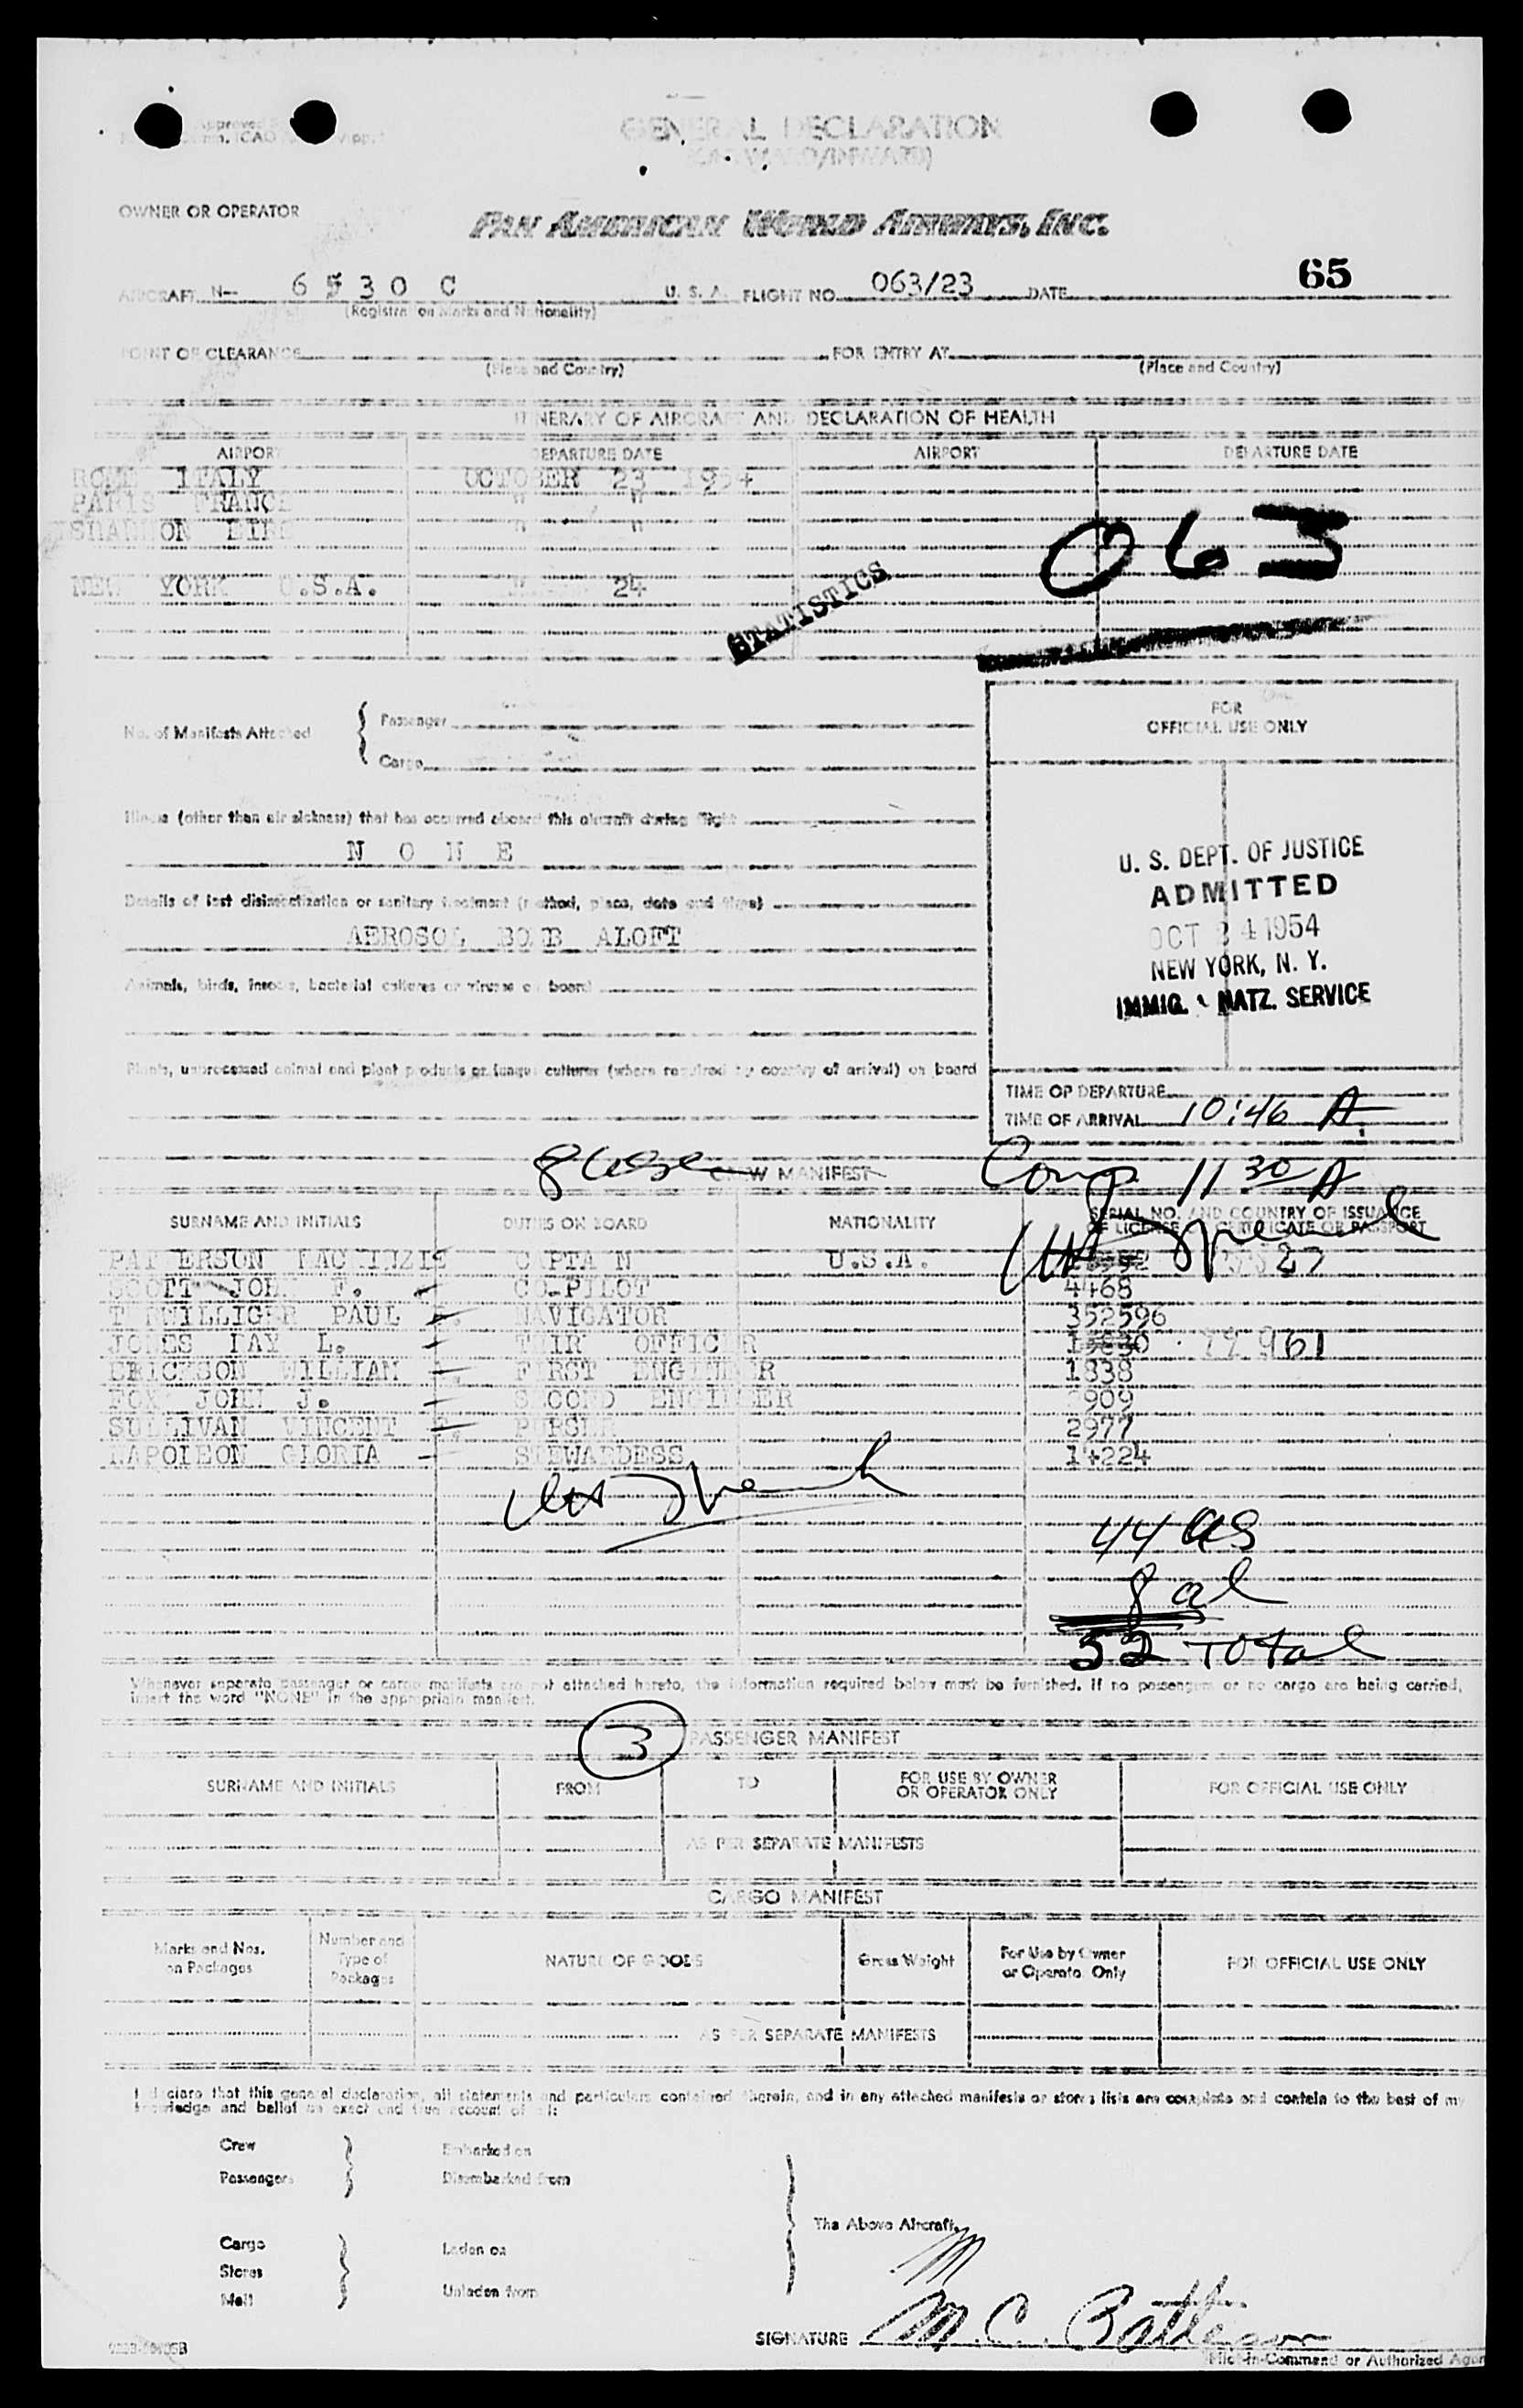 GENERAL DECLARATION
(OUTWARD/INWARD)
OWNER OR OPERATOR
PAN AMERICAN WORLD AIRWAYS, INC.
65
AIRCRAFT N— 6530 C U. S. A. FLIGHT NO. 063/23 DATE
(Registration Marks and Nationality)
POINT OF CLEARANCE FOR ENTRY AT
(Place and Country) (Place and Country)
ITINERARY OF AIRCRAFT AND DECLARATION OF HEALTH
AIRPORT DEPARTURE DATE AIRPORT DEPARTURE DATE
ROME ITALY OCTOBER 23 1954
PARIS FRANCE " "
SHANNON EIRE " "
063
NEW YORK U.S.A. " 24
STATISTICS
No. of Manifests Attached { Passenger
Cargo
FOR
OFFICIAL USE ONLY
Illness (other than air sickness) that has occurred aboard this aircraft during flight
N O N E
Details of last disinsectization or sanitary treatment (method, place, date and time)
AEROSOL BOMB ALOFT
Animals, birds, insects, bacterial cultures or viruses on board
Plants, unprocessed animal and plant products or fungus cultures (where required by country of arrival) on board
U. S. DEPT. OF JUSTICE
ADMITTED
OCT 24 1954
NEW YORK, N. Y.
IMMIG. & NATZ. SERVICE
TIME OF DEPARTURE
TIME OF ARRIVAL 10:46 A
CREW MANIFEST
Comp 11 30 A
SURNAME AND INITIALS DUTIES ON BOARD NATIONALITY SERIAL NO. AND COUNTRY OF ISSUANCE
OF LICENSE OR CERTIFICATE OR PASSPORT
PATTERSON MACKINZIE CAPTAIN U.S.A.
SCOTT JOHN F. CO-PILOT 4468
TERWILLIGER PAUL NAVIGATOR 352596
JONES FAY L. THIR OFFICER
ERICKSON WILLIAM FIRST ENGINEER 1838
FOX JOHN J. SECOND ENGINEER 909
SULLIVAN VINCENT PURSER 2977
NAPOLEON GLORIA STEWARDESS 14224
44 US
8 al
52 Total
Whenever separate passenger or cargo manifests are not attached hereto, the information required below must be furnished. If no passengers or no cargo are being carried,
insert the word "NONE" in the appropriate manifest.
3
PASSENGER MANIFEST
SURNAME AND INITIALS FROM TO FOR USE BY OWNER
OR OPERATOR ONLY FOR OFFICIAL USE ONLY
AS PER SEPARATE MANIFESTS
CARGO MANIFEST
Marks and Nos.
on Packages Number and
Type of
Packages NATURE OF GOODS Gross Weight For Use by Owner
or Operator Only FOR OFFICIAL USE ONLY
AS PER SEPARATE MANIFESTS
I declare that this general declaration, all statements and particulars contained therein, and in any attached manifests or stores lists are complete and contain to the best of my
knowledge and belief an exact and true account of all:
Crew Embarked on
Passengers Disembarked from
The Above Aircraft.
Cargo Laden on
Stores
Mail Unladen from
SIGNATURE M. C.
Pilot-in-Command or Authorized Agent